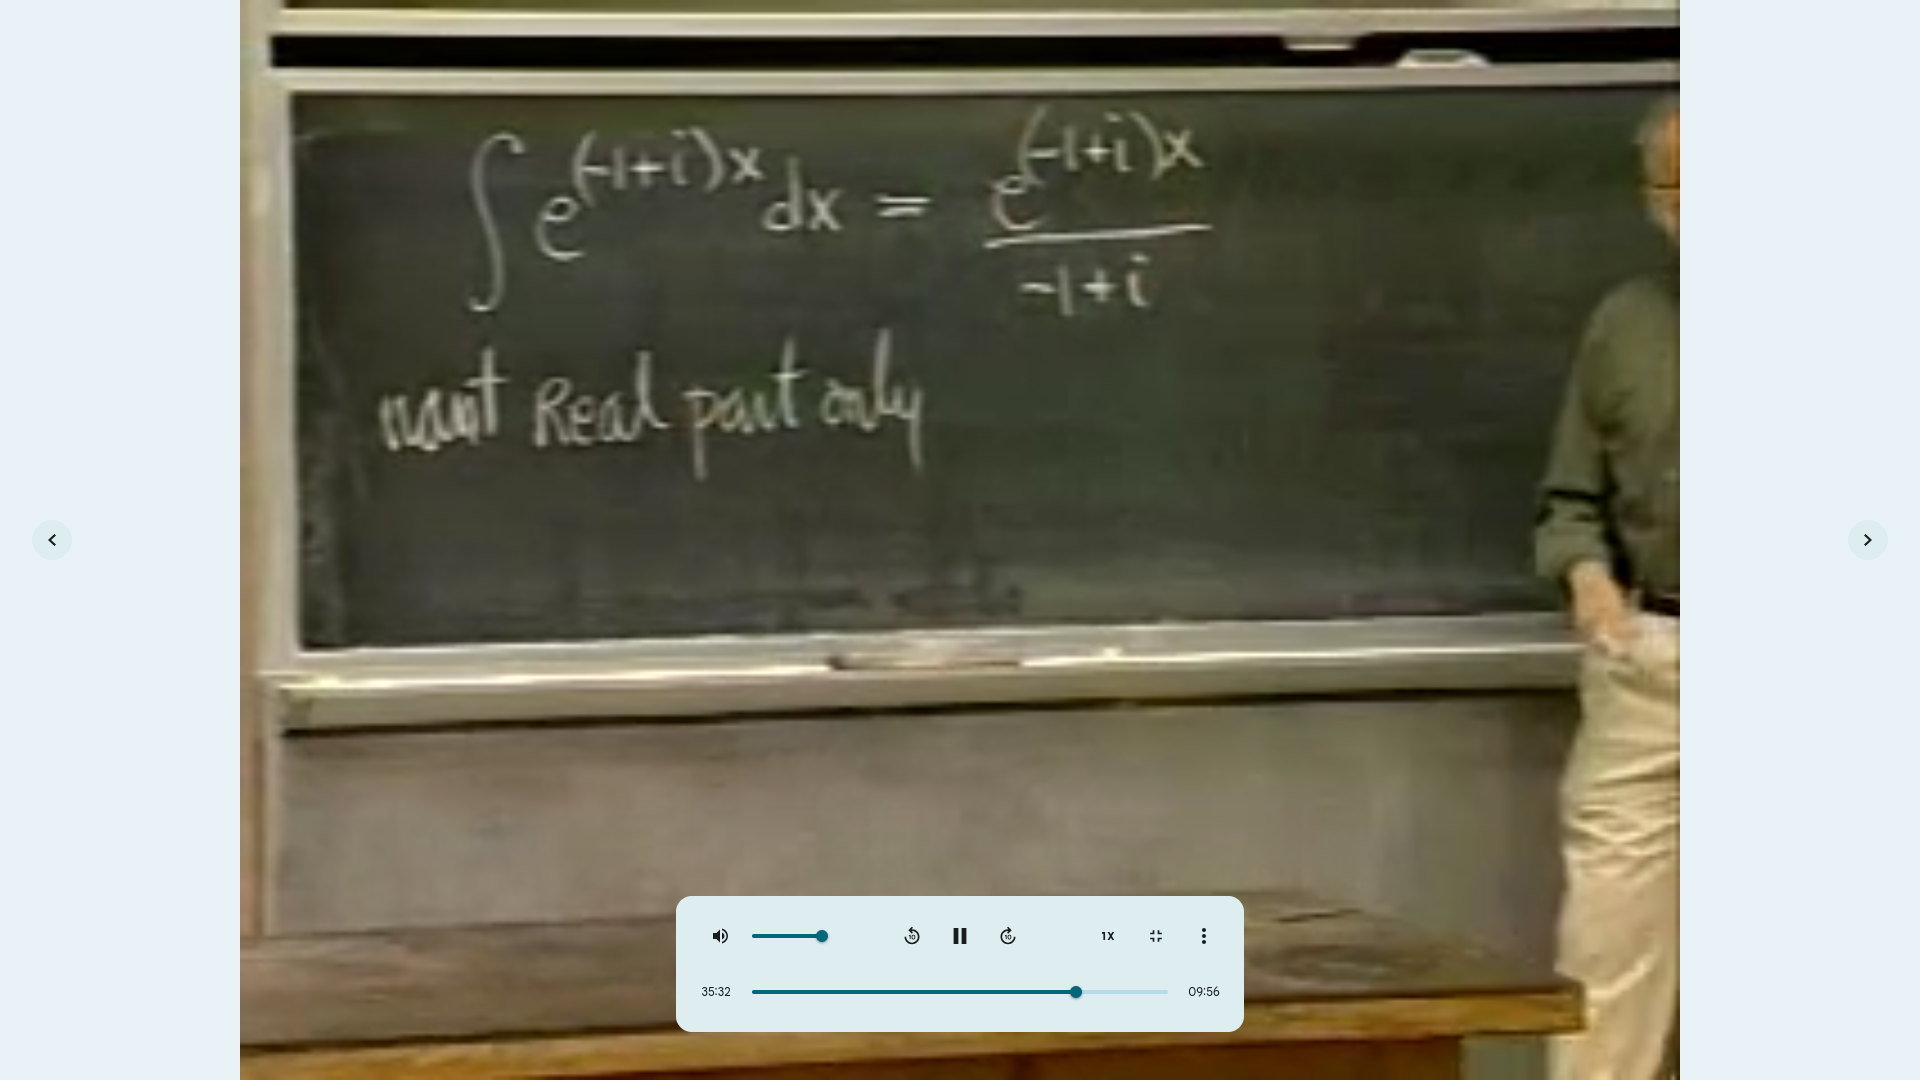 ∫ e^{(-1+i)x} dx = \frac{e^{(-1+i)x}}{-1+i}
want Real part only
10
10
1X
35:32
09:56